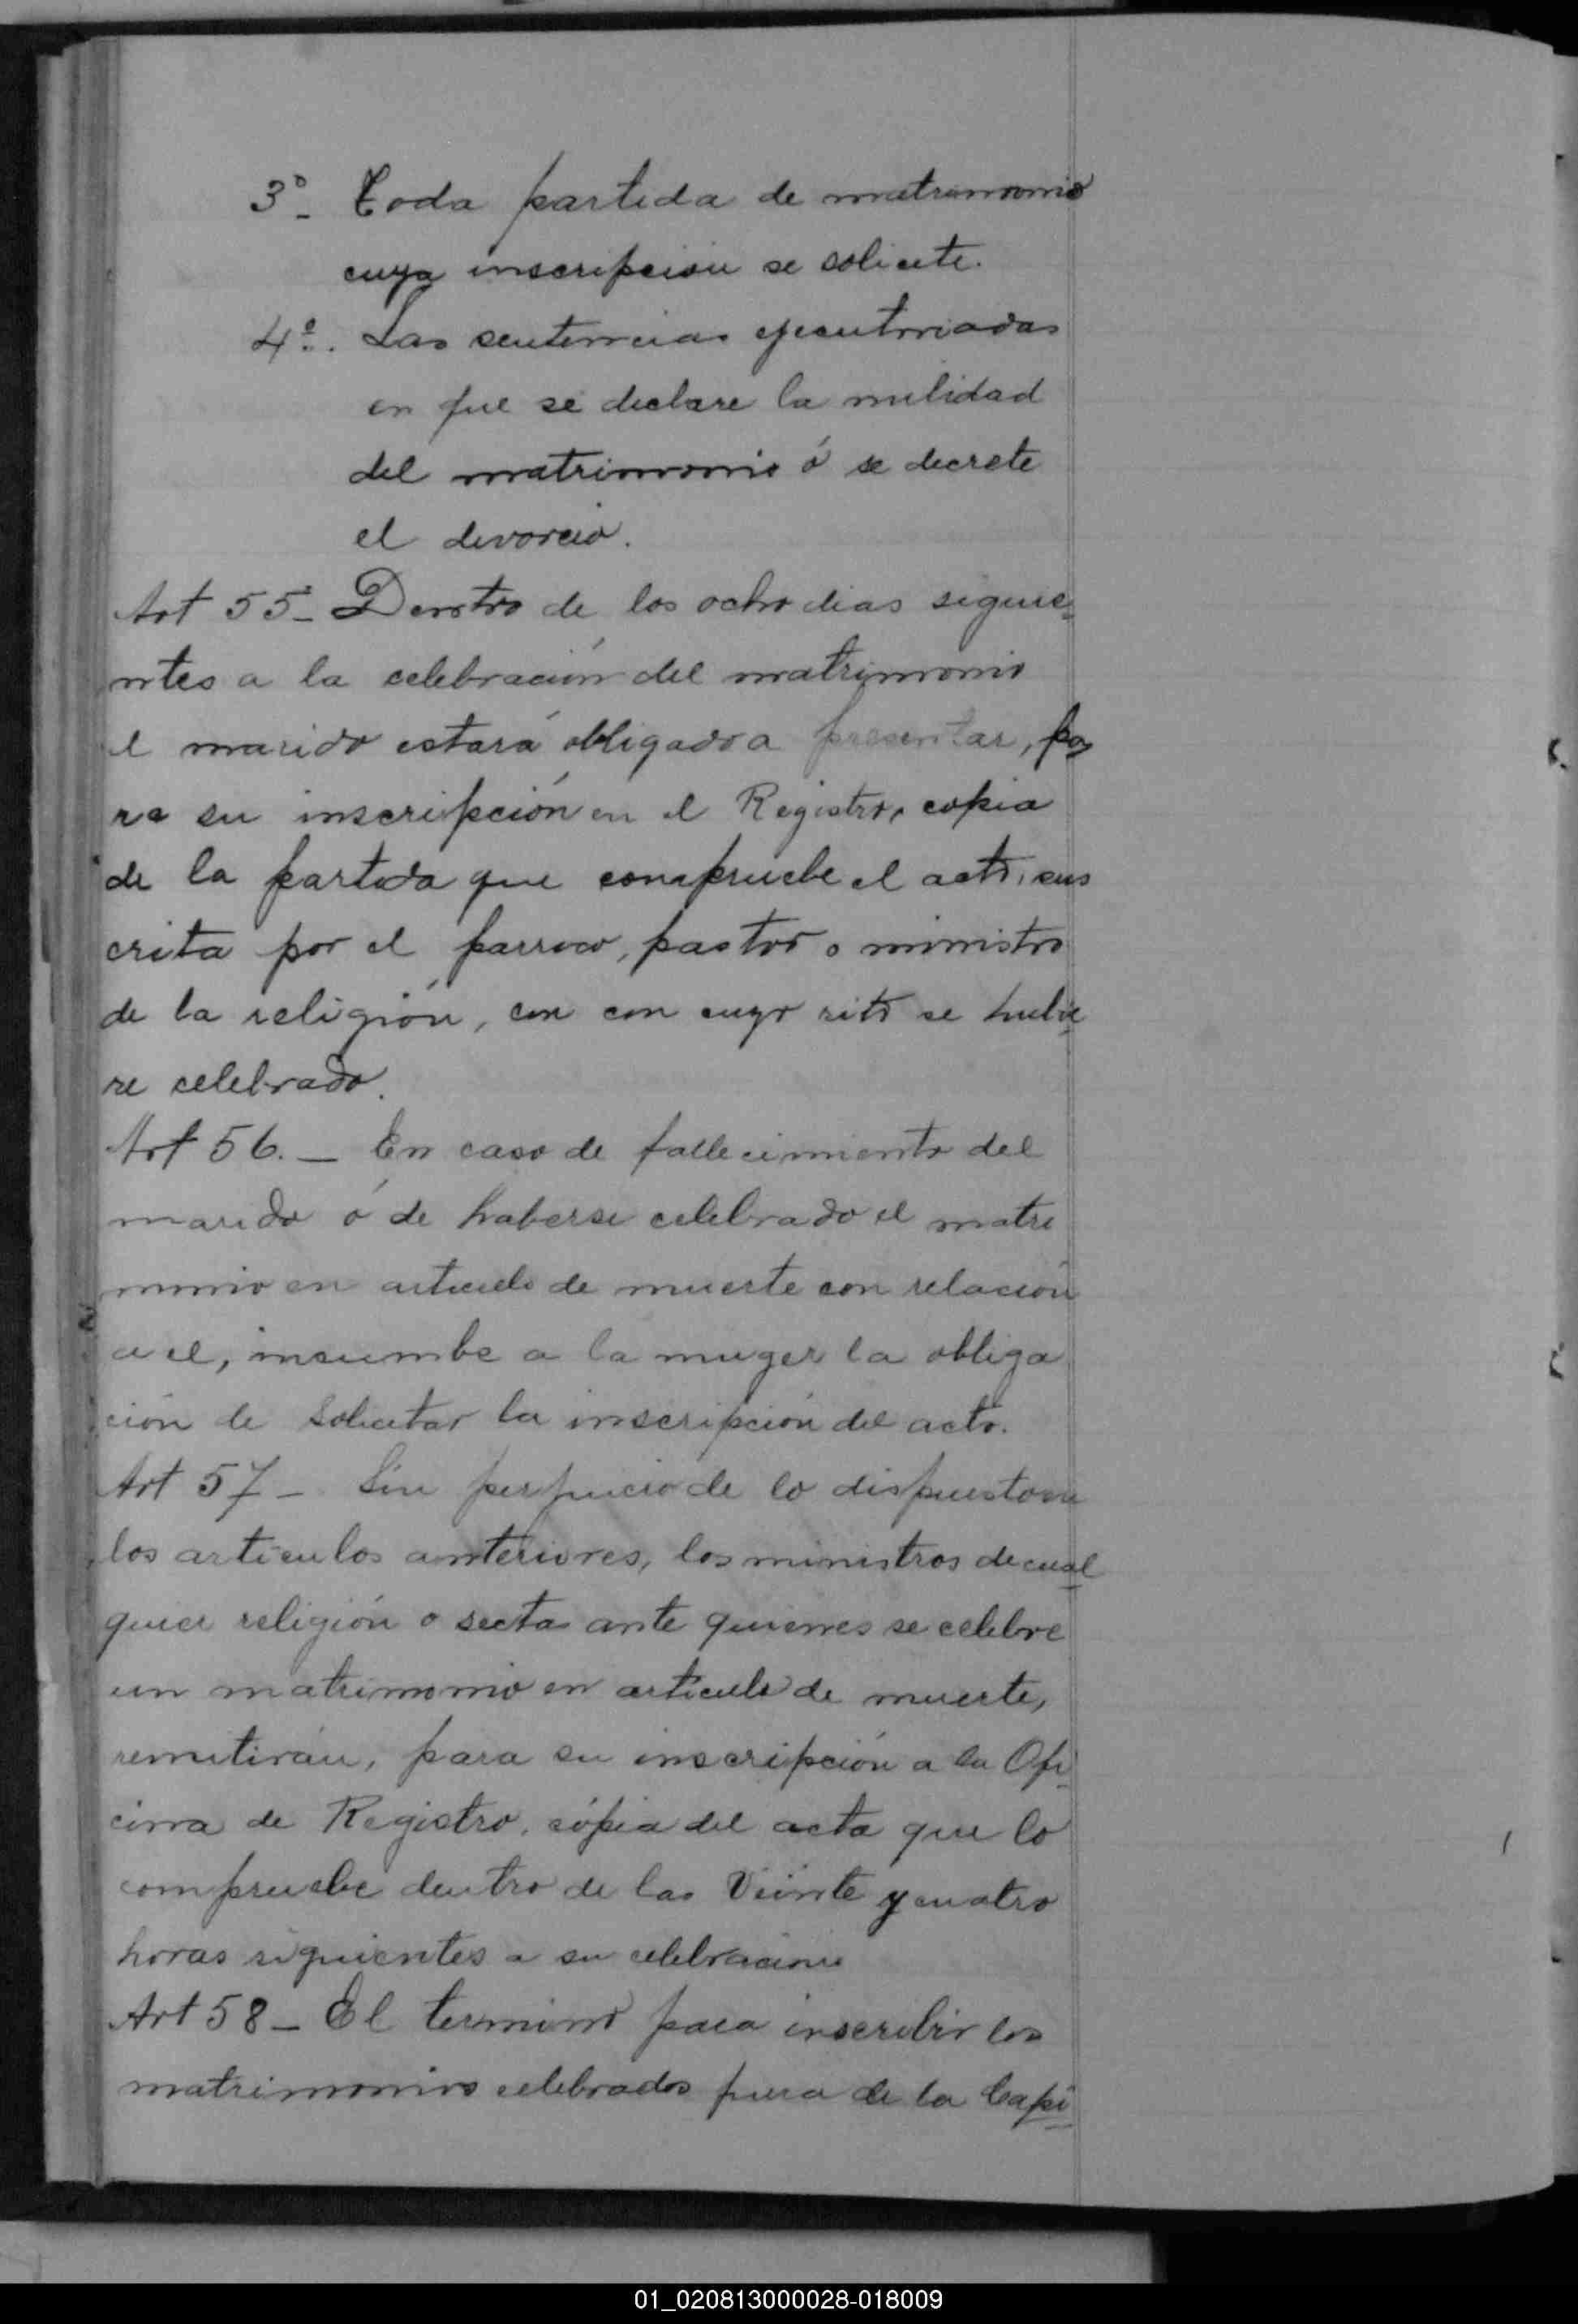 3º_ Toda partida de matrimonio
cuya inscripción se solicite.
4º. Las sentencias ejecutoriadas
en que se declare la nulidad
del matrimonio ó se decrete
el divorcio.
Art 55_ Dentro de los ocho dias siguie_
ntes a la celebración del matrimonio
el marido estará obligado a presentar, pa_
ra su inscripción en el Registro, copia
de la partida que compruebe el acto, sus
crita por el parroco, pastor o ministro
de la religión, con con cuyo rito se hubie_
re celebrado.
Art 56. _ En caso de fallecimiento del
marido ó de haberse celebrado el matri
monio en articulo de muerte con relación
a el, incumbe a la muger la obliga
ción de solicitar la inscripción del acto.
Art 57 _ Sin perjuicio de lo dispuesto en
los articulos anteriores, los ministros de cual_
quier religión o secta ante quienes se celebre
un matrimonio en articulo de muerte,
remitirán, para su inscripción a la Ofi_
cina de Registro, cópia del acta que lo
compruebe dentro de las Viente y cuatro
horas siguientes a su celebracion
Art 58 _ El termino para inscribir los
matrimonios celebrados fuera de la Capi_
01_020813000028-018009